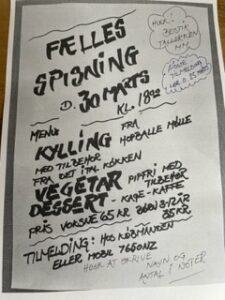 FÆLLES
SPISNING
D. 30 MARTS
KL.
MENU
KYLLING FRA
HOPBALLE MØLLE
MED TILBEHØR
FRA DET ITAL KØKKEN
VEGETAR MED
TILBEHØR
DESSERT - KAGE - KAFFE
PRIS VOKSNE 65 KR BØRN 3-12 ÅR
35 KR
TILMELDING: HOS KØBMANDEN
ELLER MOBIL
HUSK AT SKRIVE
NAVN OG
ANTAL I NOTER
HUSK!
BESTIK
TALLERKEN
MM
SIDSTE
TILMELDING